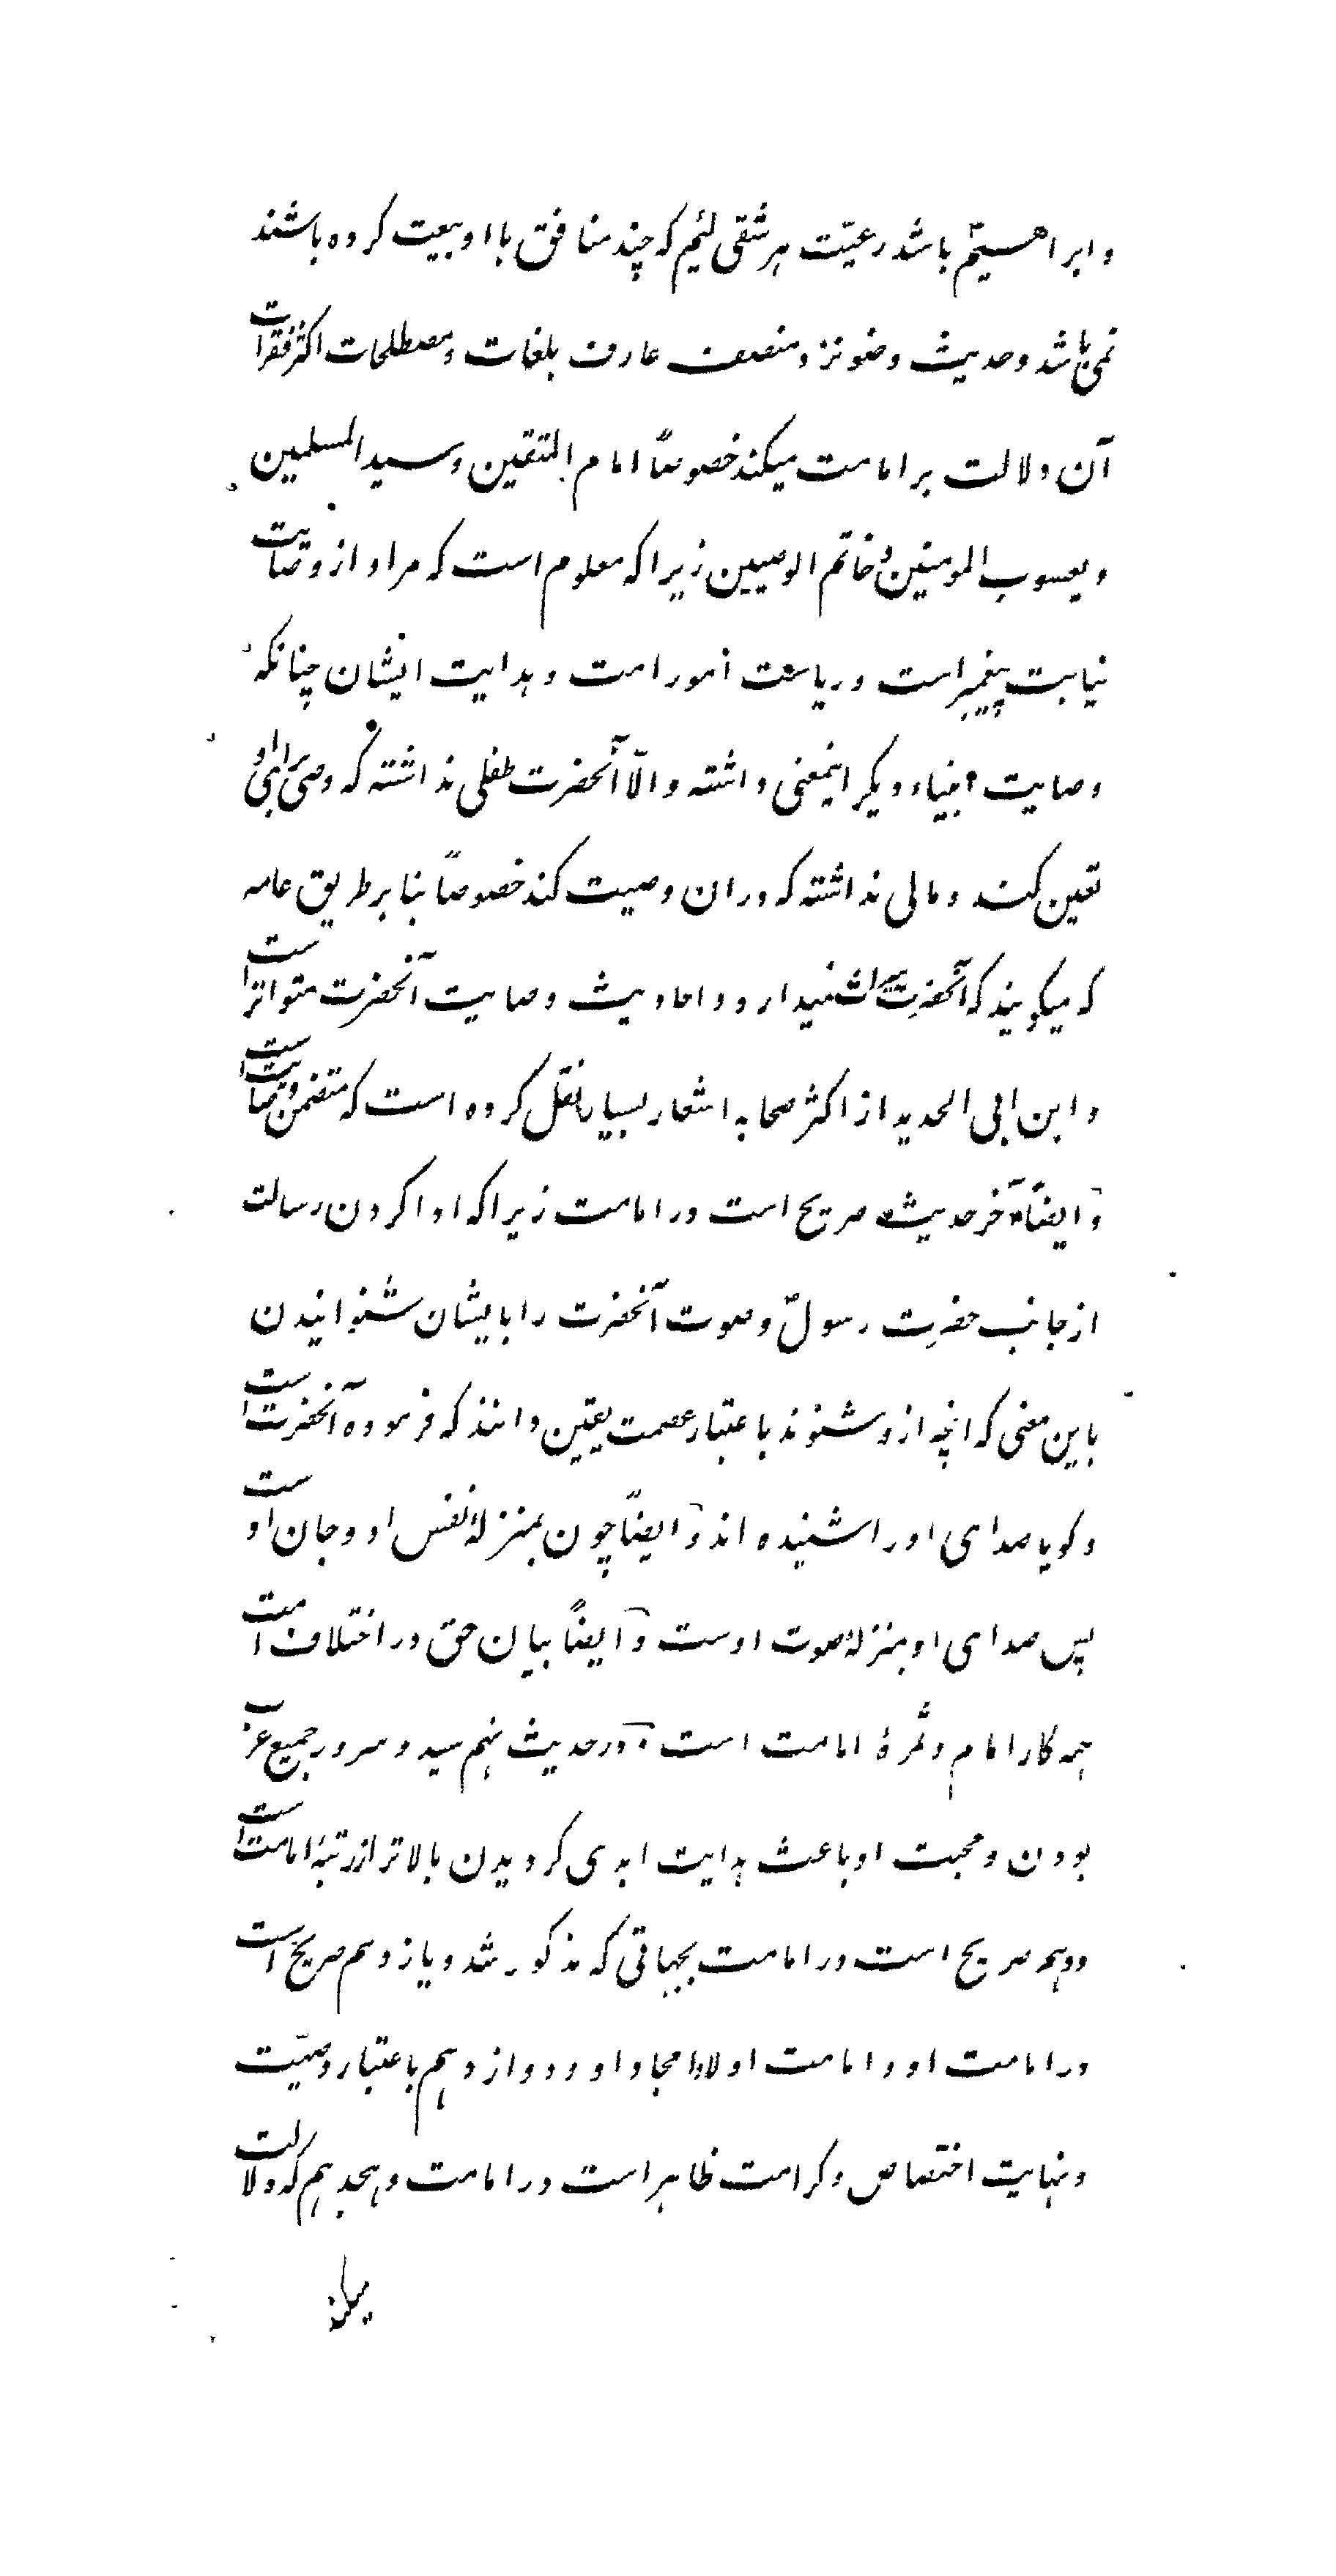 و ابراهیمؑ باشد رعیّت هر شقی لئیم که چند منافق با او بیعت کرده باشند
نمی باشد و حدیث وضو نزد منصف عارف بلغات و مصطلحات اکثر فقرات
آن دلالت بر امامت میکند خصوصاً امام المتقین و سید المسلمین
و یعسوب المومنین و خاتم الوصیین زیرا که معلوم است که مراد از وصایت
نیابت پیغمبر است و ریاست امور امت و هدایت ایشان چنانکه
وصایت انبیاء دیگر اینمعنی داشته و الّا آنحضرت طفلی نداشته که وصی برای او
تعین کند و مالی نداشته که در ان وصیت کند خصوصاً بنا بر طریق عامه
که میگویند که آنحضرت میراث نمیدارد و احادیث وصایت آنحضرت متواتر است
و ابن ابی الحدید از اکثر صحابه اشعار بسیار نقل کرده است که متضمن وصایت است
و ایضاً آخر حدیث صریح است در امامت زیرا که ادا کردن رسالت
از جانب حضرت رسولؐ و صوت آنحضرت را بایشان شنوانیدن
باین معنی که انچه از و شنوند باعتبار عصمت یقین دانند که فرموده آنحضرت است
و گویا صدای او را شنیده اند و ایضاً چون بمنزلۀ نفس او و جان اوست
پس صدای او بمنزلۀ صوت اوست و ایضاً بیان حق در اختلاف امت
همه کار امام و ثمرۀ امامت است و در حدیث نهم سید و سرور جمیع عرب
بودن و محبت او باعث هدایت ابدی گردیدن بالاتر از رتبۀ امامت است
و دهم صریح است در امامت بجهاتی که مذکور شد و یازدهم صریح است
در امامت او و امامت اولاد امجاد او و دوازدهم باعتبار وصیّت
و نهایت اختصاص و کرامت ظاهر است در امامت و هجدهم که دلالت
میکند